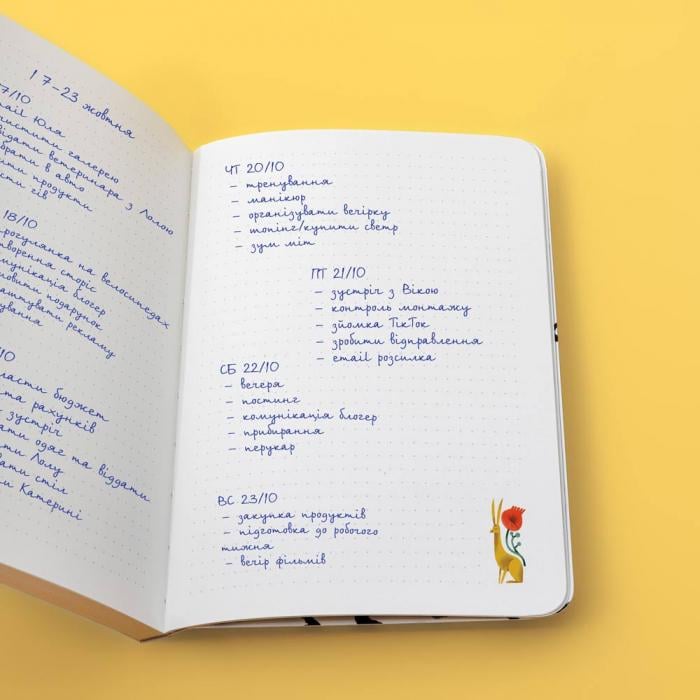 17-23 жовтня
17/10
email Юля
чистити галерею
ветеринара з Лолою
в авто
продукти
18/10
прогулянка на велосипедах
створення сторіс
комунікація блогер
подарунок
рекламу
бюджет
та рахунків
зустріч
одяг та віддати
Лолу
стіл
Катерині
ЧТ 20/10
- тренування
- манікюр
- організувати вечірку
- шопінг/купити светр
- зум міт
ПТ 21/10
- зустріч з Вікою
- контроль монтажу
- зйомка ТікТок
- зробити відправлення
- email розсилка
СБ 22/10
- вечеря
- постинг
- комунікація блогер
- прибирання
- перукар
ВС 23/10
- закупка продуктів
- підготовка до робочого
тижня
- вечір фільмів